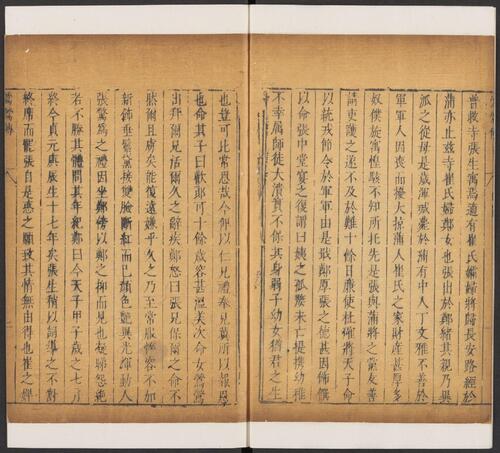 普救寺張生寓焉適有崔氏孀婦將歸長安路經於
蒲亦止茲寺崔氏婦鄭女也張出於鄭緒其親乃異
派之從母是歲渾瑊薨於蒲有中人丁文雅不善於
軍軍人因喪而擾大掠蒲人崔氏之家財產甚厚多
奴僕旅寓惶駭不知所托先是張與蒲將之黨友善
請吏護之遂不及於難十餘日廉使杜確將天子命
以統戎節令於軍軍由是戢鄭厚張之德甚因飾饌
以命張中堂宴之復謂曰姨之孤嫠未亡提攜幼稚
不幸屬師徒大潰實不保其身弱子幼女猶君之生
也豈可比常恩哉今俾以仁兄禮奉見冀所以報恩
也命其子曰歡郎可十餘歲容甚溫美次命女鶯鶯
出拜爾兄活爾久之辭疾鄭怒曰張兄保爾之命不
然爾且虜矣能復遠嫌乎久之乃至常服睟容不加
新飾垂鬟接黛雙臉斷紅而已顏色艷異光輝動人
張驚為之禮因坐鄭傍以鄭之抑而見也凝睇怨絕
若不勝其體問其年紀鄭曰今天子甲子歲之七月
終今貞元庚辰生十七年矣張生稍以詞導之不對
終席而罷張自是惑之願致其情無由得也崔之婢
鶯鶯傳